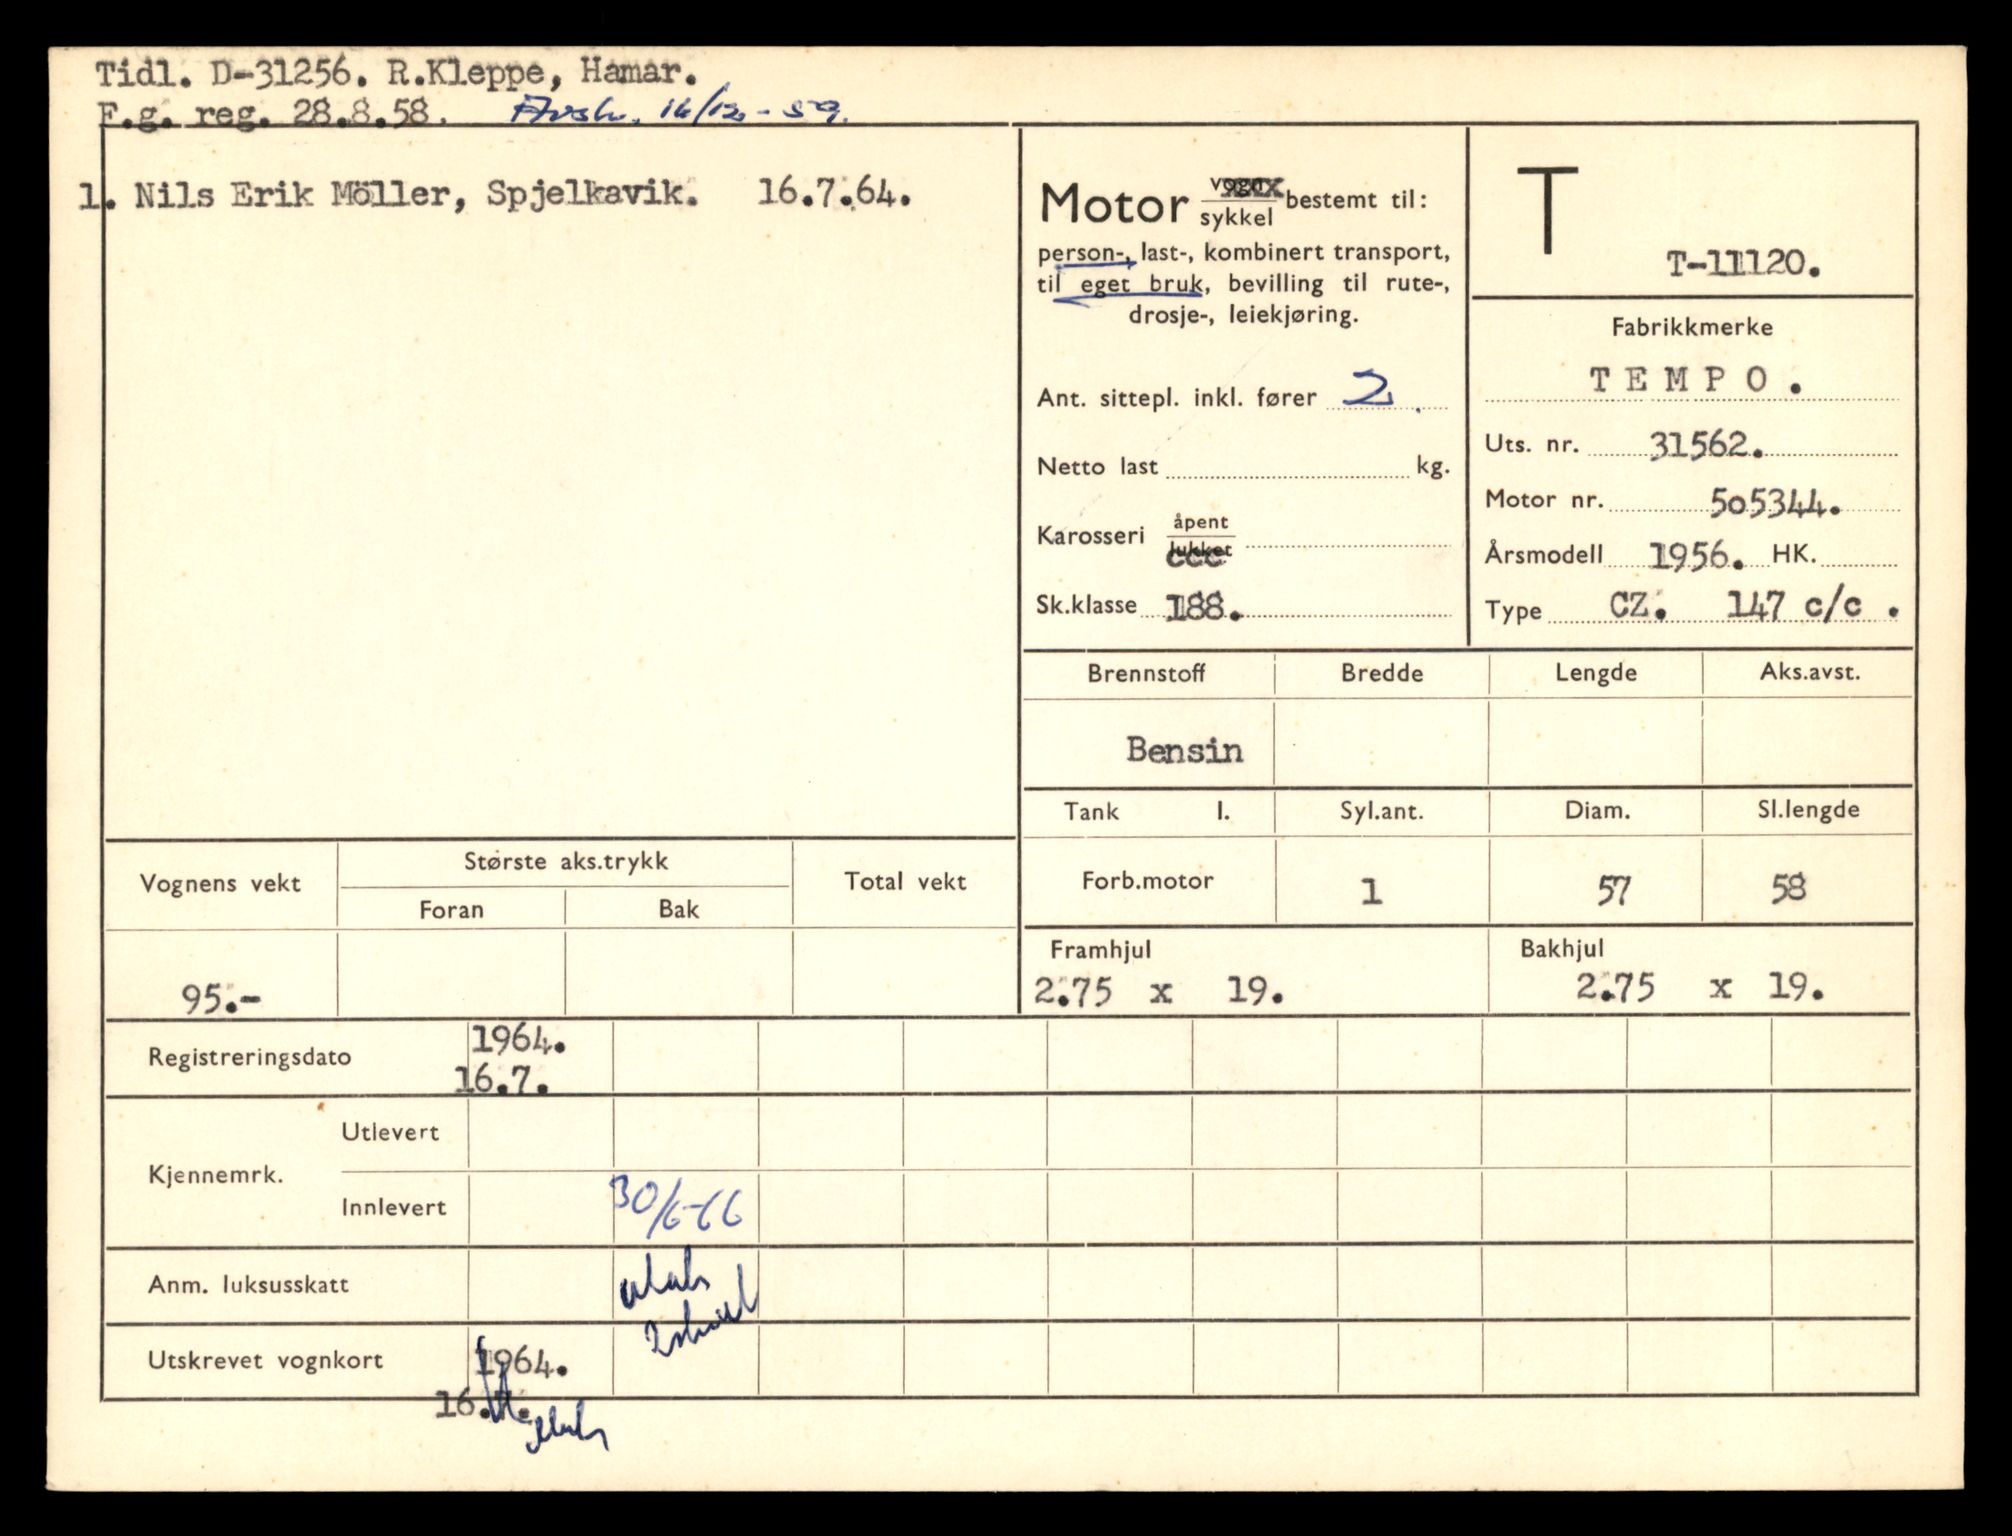 Tidl. D-31256. R.Kleppe, Hamar.
F.g. reg. 28.8.58. Avsk. 16/12-59.
1. Nils Erik Möller, Spjelkavik. 16.7.64.
Motor vogn/sykkel bestemt til:
person-, last-, kombinert transport,
til eget bruk, bevilling til rute-,
drosje-, leiekjøring.
Ant. sittepl. inkl. fører 2
Netto last kg.
Karosseri åpent/lukket
Sk.klasse 188.
T
T-11120.
Fabrikkmerke
TEMPO.
Uts. nr. 31562.
Motor nr. 505344.
Årsmodell 1956. HK.
Type CZ. 147 c/c .
Brennstoff Bredde Lengde Aks.avst.
Bensin
Tank l. Syl.ant. Diam. Sl.lengde
Forb.motor 1 57 58
Framhjul Bakhjul
2.75 x 19. 2.75 x 19.
Vognens vekt Største aks.trykk Total vekt
Foran Bak
95.-
Registreringsdato 1964.
16.7.
Kjennemrk. Utlevert
Innlevert 30/6-66
Anm. luksusskatt
Utskrevet vognkort 1964.
16.7.